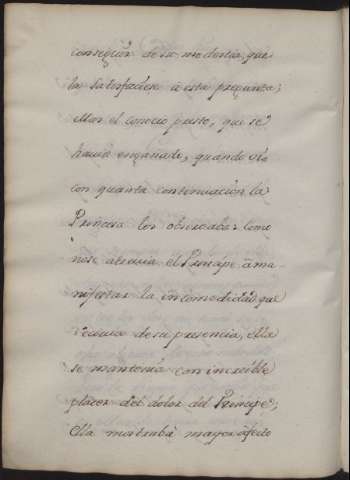 conseguir de su modestia, que
la satisfaciese a esta pregunta;
mas el conocio presto, que se
havia engañado, quando vio
con quanta continuacion la
Princesa los observaba: Como
no se atrevia el Principe ama
nifestar la incomodidad que
recivia de su presencia, ella
se mantenia con increible
placer del dolor del Principe;
ella mostraba mayor afecto